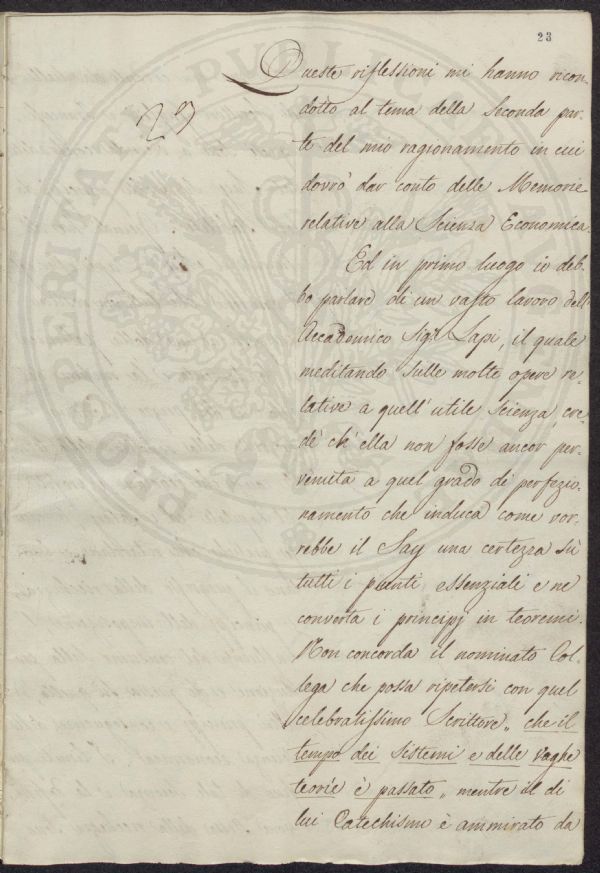 23
29
Queste riflessioni mi hanno ricon-
dotto al tema della seconda par-
te del mio ragionamento in cui
dovrò dar conto delle Memorie
relative alla Scienza Economica.
Ed in primo luogo io deb-
bo parlare di un vasto lavoro dell'
Accademico Sigr. Lapi, il quale
meditando sulle molte opere re-
lative a quell'utile scienza, cre-
dè ch'ella non fosse ancor per-
venuta a quel grado di perfezio-
namento che induca come vor-
rebbe il Say una certezza su
tutti i punti essenziali e ne
converta i principj in teoremi.
Non concorda il nominato Col-
lega che possa ripetersi con quel
celebratissimo Scrittore „ che il
tempo dei sistemi e delle vaghe
teorie è passato „ mentre il di
lui Catechismo è ammirato da